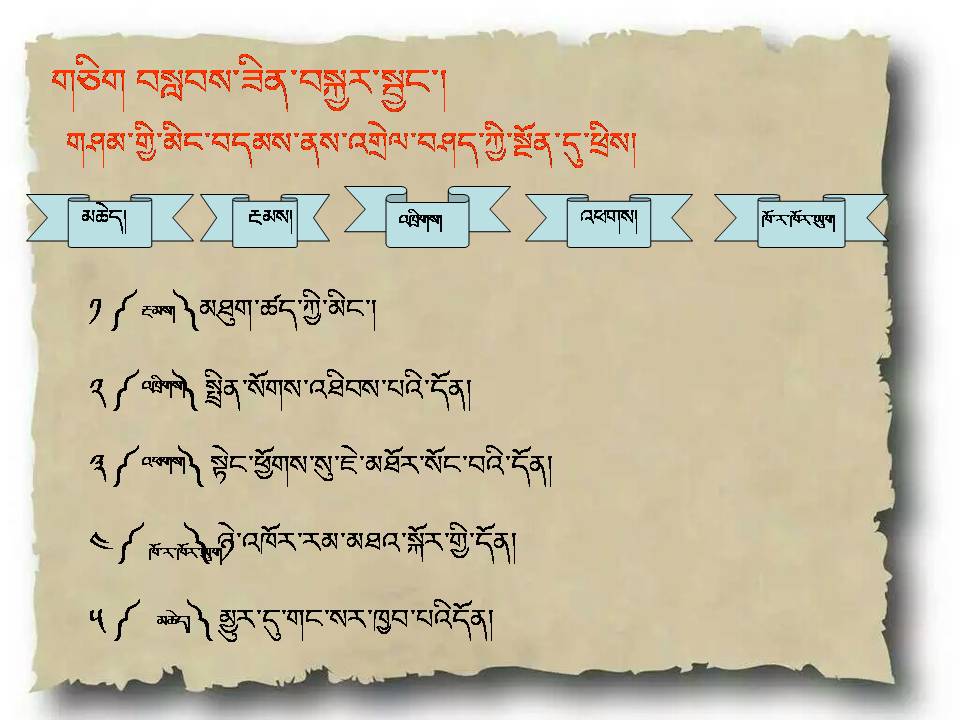 གཅིག བསླབས་ཟིན་བསྐྱར་སྦྱང་།
གཤམ་གྱི་མིང་བདམས་ནས་འགྲེལ་བཤད་ཀྱི་སྔོན་དུ་ཕྲིས།
མཆེད། རྔམས། འཁྲིགས། འཕགས། ཁོ་ར་ཁོར་ཡུག
༡ ༼ རྔམས། ༽མཐུག་ཚད་ཀྱི་མིང་།
༢ ༼ འཁྲིགས། ༽ སྤྲིན་སོགས་འཐིབས་པའི་དོན།
༣ ༼ འཕགས། ༽ སྟེང་ཕྱོགས་སུ་ཇེ་མཐོར་སོང་བའི་དོན།
༤ ༼ ཁོ་ར་ཁོར་ཡུག ༽ཉེ་འཁོར་རམ་མཐའ་སྐོར་གྱི་དོན།
༥ ༼ མཆེད། ༽ མྱུར་དུ་གང་སར་ཁྱབ་པའིདོན།